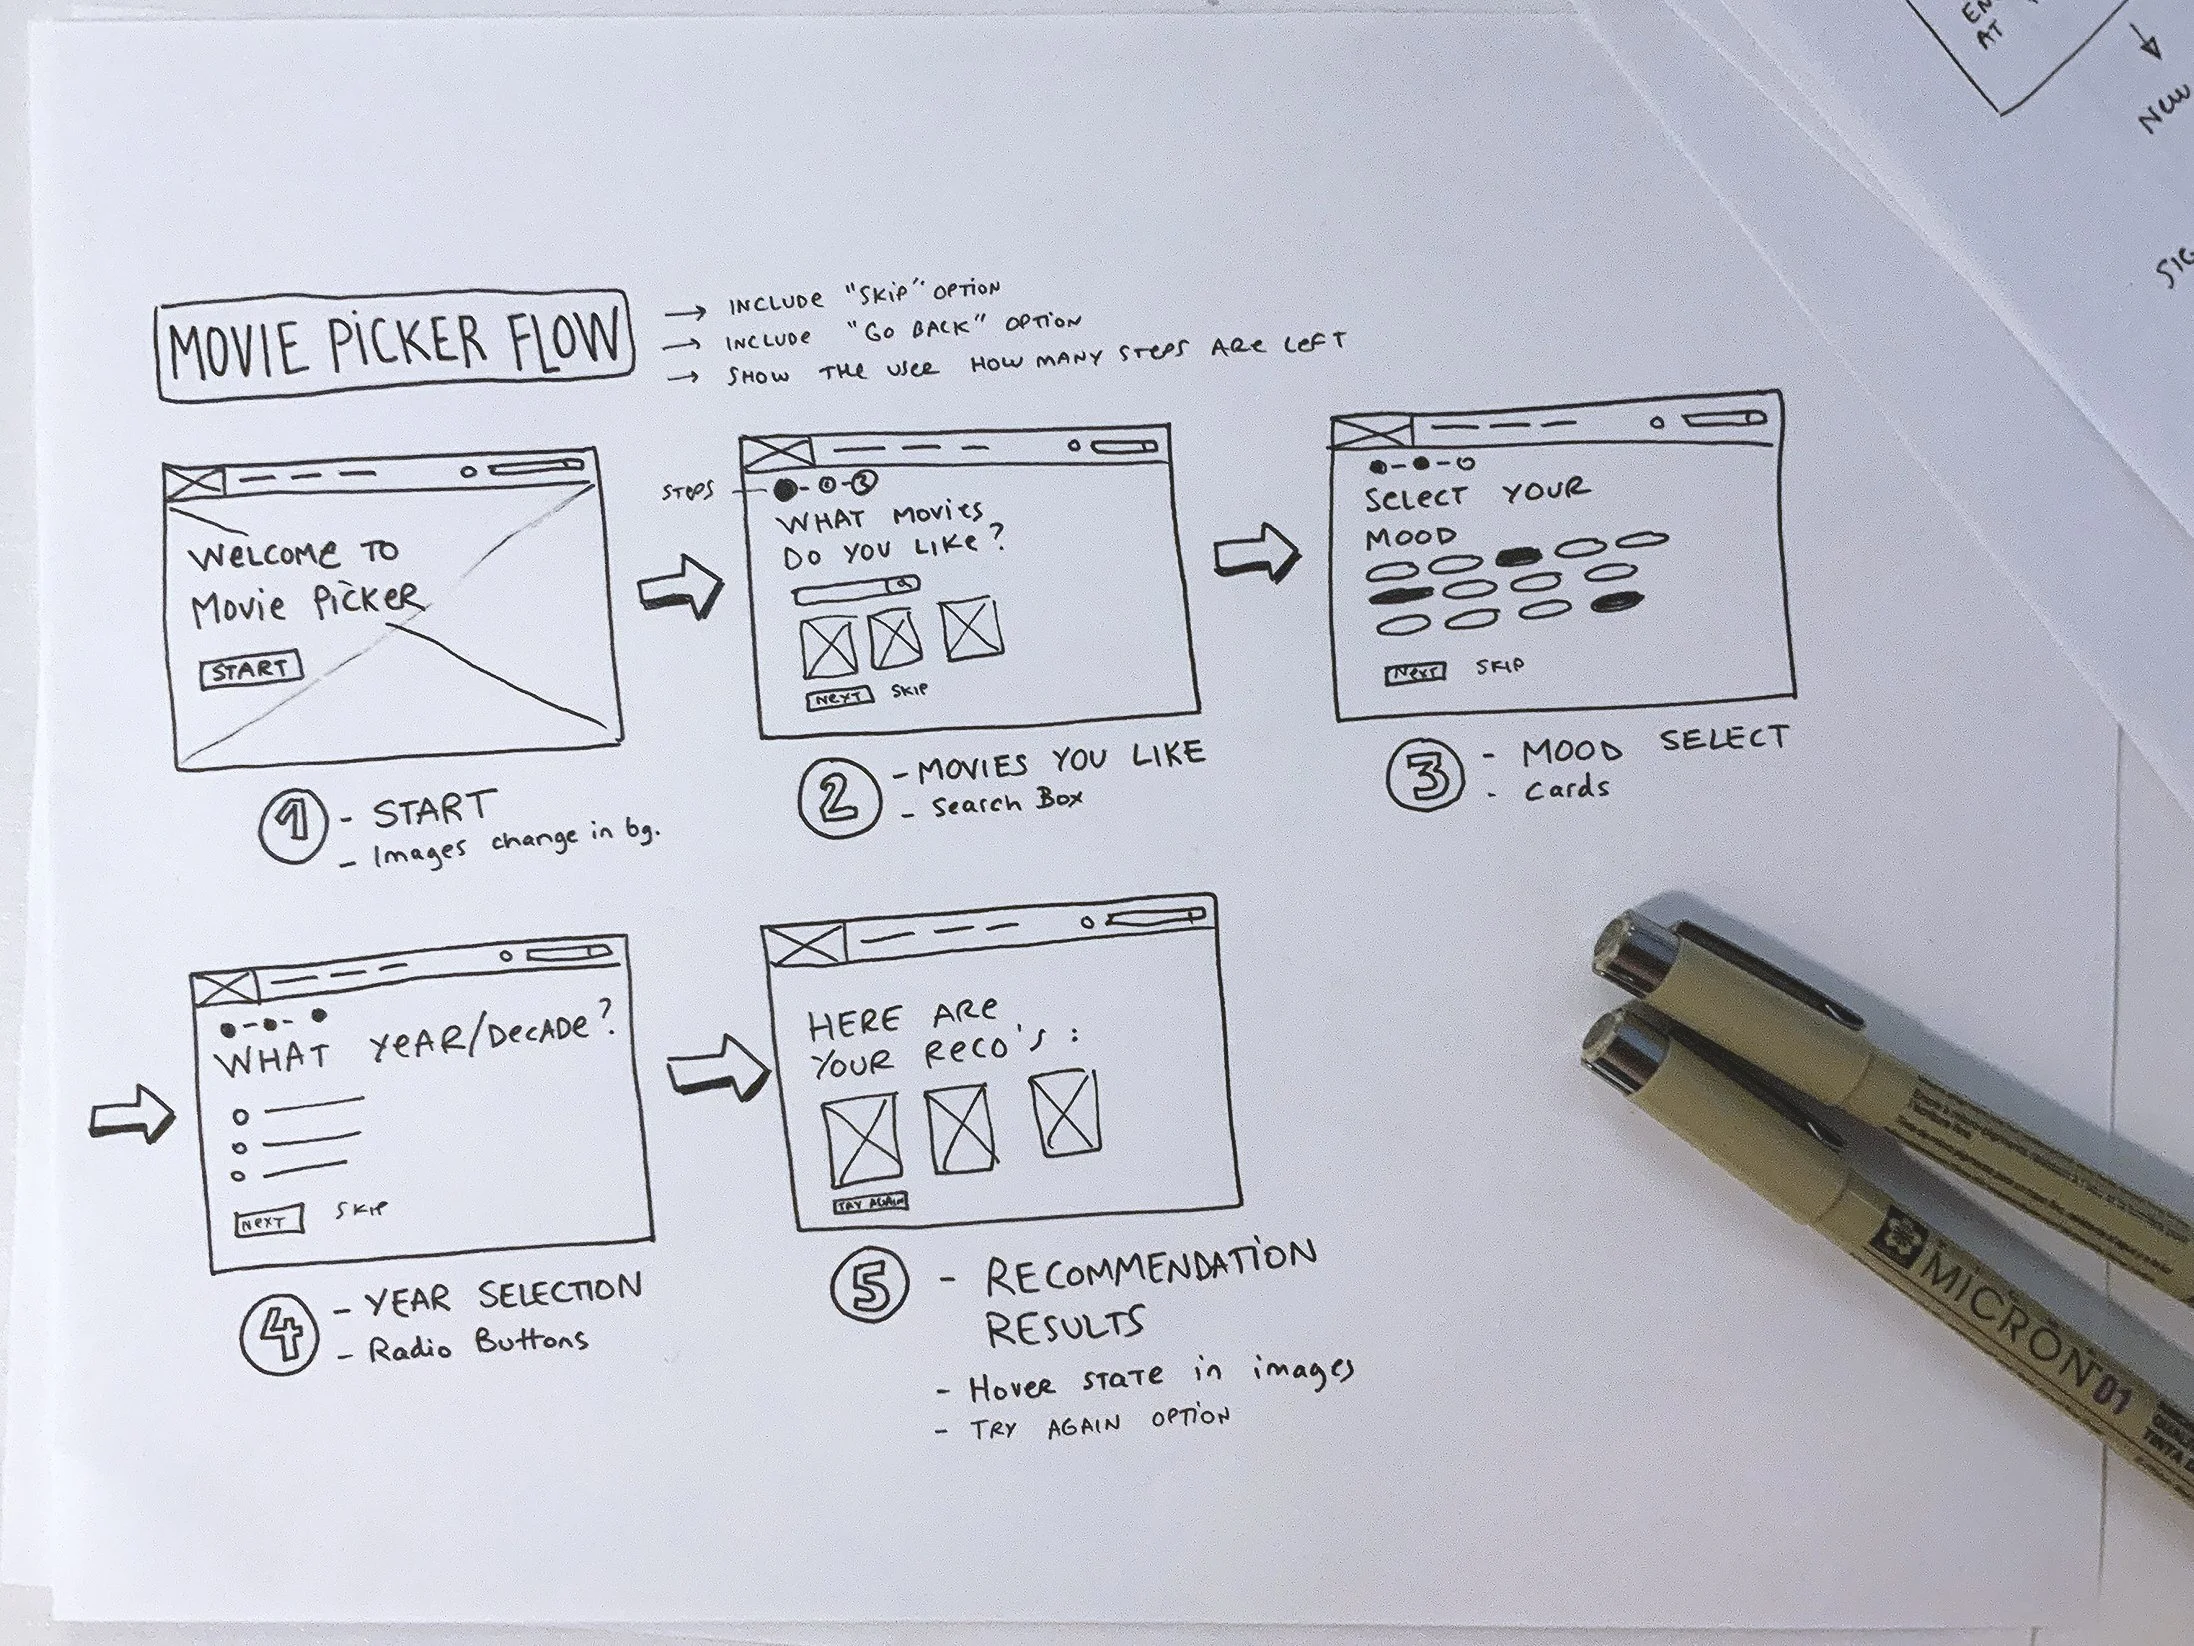 MOVIE PICKER FLOW
→ INCLUDE "SKIP" OPTION
→ INCLUDE "GO BACK" OPTION
→ SHOW THE USER HOW MANY STEPS ARE LEFT
WELCOME TO
MOVIE PICKER
START
1 - START
- Images change in bg.
STEPS
WHAT MOVIES
DO YOU LIKE?
NEXT SKIP
2 - MOVIES YOU LIKE
- Search Box
SELECT YOUR
MOOD
NEXT SKIP
3 - MOOD SELECT
- Cards
WHAT YEAR/DECADE?
NEXT SKIP
4 - YEAR SELECTION
- Radio Buttons
HERE ARE
YOUR RECO'S:
TRY AGAIN
5 - RECOMMENDATION
RESULTS
- Hover STATE in images
- TRY AGAIN OPTION
AT
NEW
MICRON 01